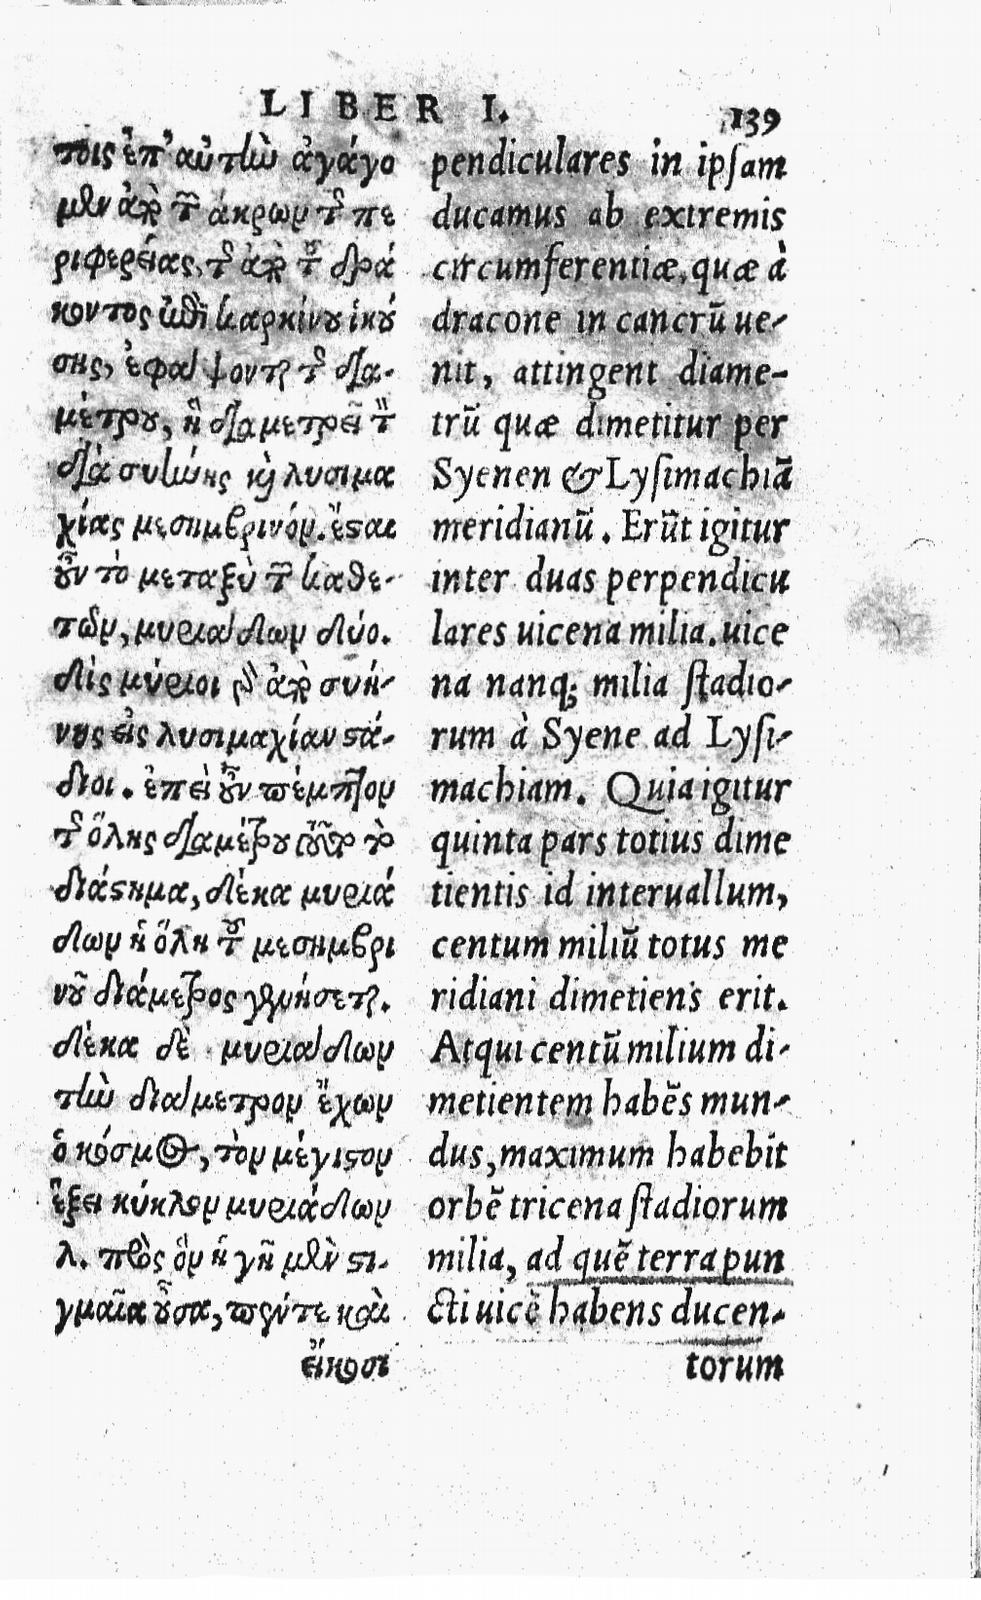 LIBER I. 139
τοις ἐπ' αὐτὴν ἀγάγο
μεν ἀπὸ τῶν ἄκρων τῆς πε
ριφερείας, τῆς ἀπὸ τοῦ δρά
κοντος ἐπὶ καρκίνου ἡκού
σης, ἐφάψονται τῆς δια-
μέτρου, ἣ διαμετρεῖ τὸν
διὰ συήνης καὶ λυσιμα
χίας μεσημβρινόν. ἔσαι
οὖν τὸ μεταξὺ τῶν καθέ-
των, μυριάδων δύο.
δὶς μύριοι γὰρ ἀπὸ συή-
νης εἰς λυσιμαχίαν στά-
διοι. ἐπεὶ οὖν πέμπτον
τῆς ὅλης διαμέτρου τοῦτο τὸ
διάστημα, δέκα μυριά
δων ἡ ὅλη τοῦ μεσημβρι
νοῦ διάμετρος γενήσεται.
δέκα δὲ μυριάδων
τὴν διάμετρον ἔχων
ὁ κόσμος, τὸν μέγιστον
ἕξει κύκλον μυριάδων
λ. πρὸς ὃν ἡ γῆ μὲν στι-
γμαῖα οὖσα, πέντε καὶ
εἴκοσι
pendiculares in ipsam
ducamus ab extremis
circumferentiæ, quæ à
dracone in cancrũ ue-
nit, attingent diame-
trũ quæ dimetitur per
Syenen & Lysimachiã
meridianũ. Erũt igitur
inter duas perpendicu
lares uicena milia. uice
na nanq; milia stadio-
rum à Syene ad Lysi-
machiam. Quia igitur
quinta pars totius dime
tientis id interuallum,
centum miliũ totus me
ridiani dimetiens erit.
Atqui centũ milium di-
metientem habẽs mun-
dus, maximum habebit
orbẽ tricena stadiorum
milia, ad quẽ terra pun
cti uicẽ habens ducen-
torum